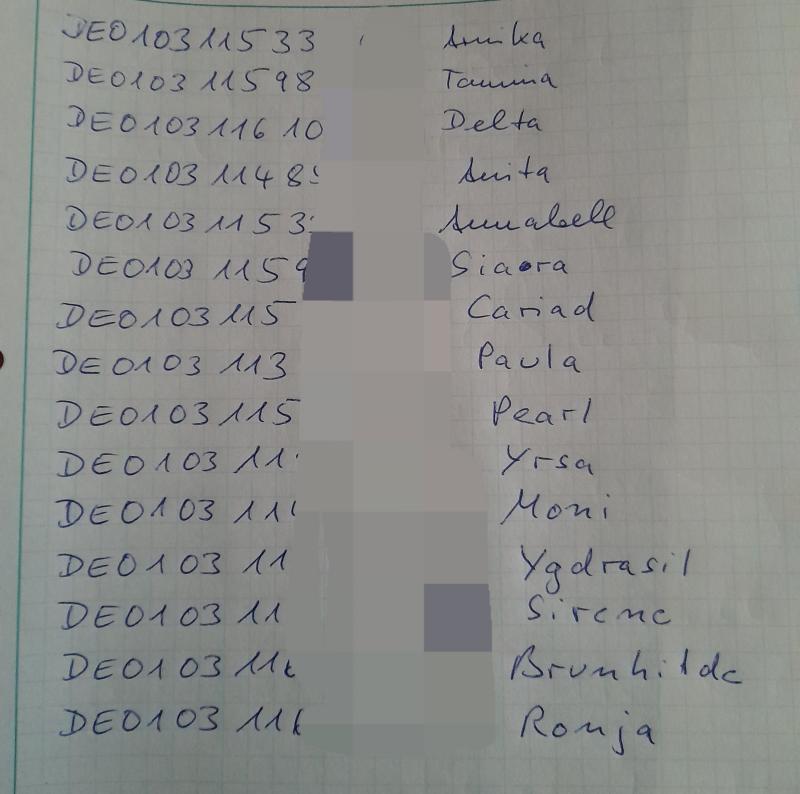 DE0103 115 33 Annika
DE0103 115 98 Tamina
DE0103 116 10 Delta
DE0103 114 8 Anita
DE0103 115 3 Annabell
DE0103 115 9 Siaora
DE0103 115 Cariad
DE0103 113 Paula
DE0103 115 Pearl
DE0103 11 Yrsa
DE0103 11 Moni
DE0103 11 Ygdrasil
DE0103 11 Sirene
DE0103 11 Brunhilde
DE0103 11 Ronja